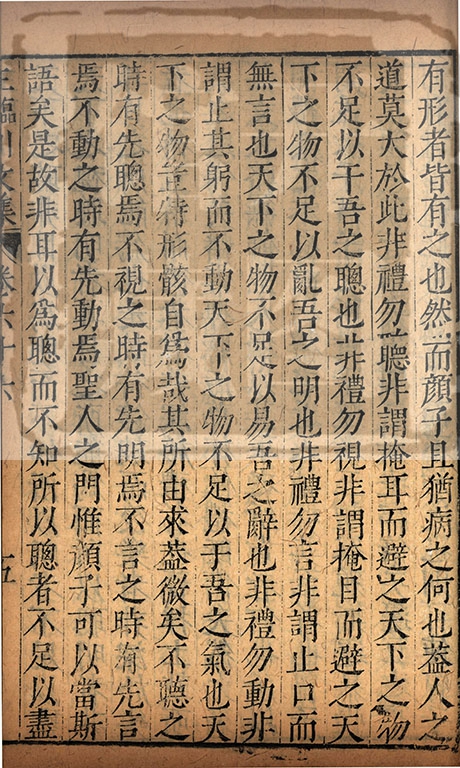 有形者皆有之也然而顔子且猶病之何也葢人之
道莫大於此非禮勿聽非謂掩耳而避之天下之物
不足以干吾之聰也非禮勿視非謂掩目而避之天
下之物不足以亂吾之明也非禮勿言非謂止口而
無言也天下之物不足以易吾之辭也非禮勿動非
謂止其躬而不動天下之物不足以干吾之氣也天
下之物豈特形骸自爲哉其所由來葢微矣不聽之
時有先聰焉不視之時有先明焉不言之時有先言
焉不動之時有先動焉聖人之門惟顔子可以當斯
語矣是故非耳以爲聰而不知所以聰者不足以盡
王臨川文集 卷六十六 五